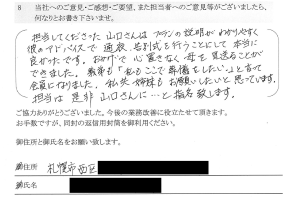 8 当社へのご意見・ご感想・ご要望、また担当者へのご意見等がございましたら、
何なりとお書き下さいませ。
担当してくださった山口さんは プランの説明がわかりやすく
彼のアドバイスで 通夜、告別式を行うことにして 本当に
良かったです。おかげで 心置きなく 母を見送ることが
できました。 義弟も「私もここで葬儀をしたい。」と言って
会員になりました。 私共姉妹も お願いしたいと思っています。
担当は是非 山口さんに…と指名致します。
ご協力ありがとうございました。今後の業務改善に役立たせて頂きます。
お手数ですが、同封の返信用封筒を御利用ください。
御住所と御氏名をお願い致します。
御住所 札幌市西区
御氏名